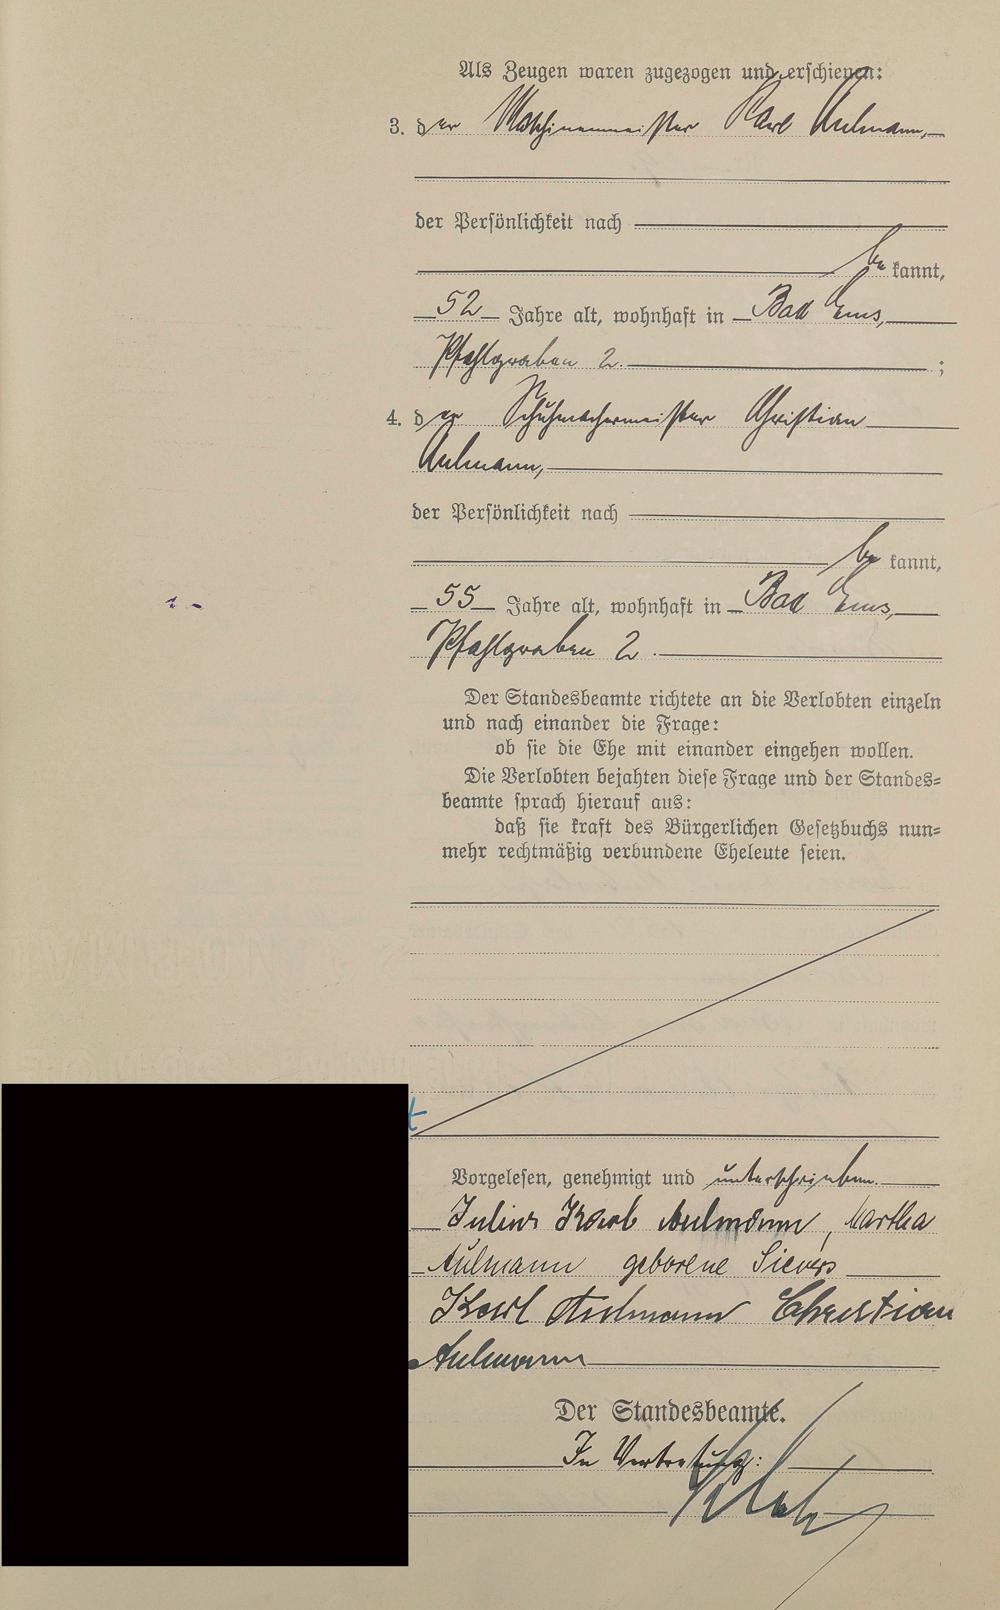 Als Zeugen waren zugezogen und erschienen:
3. der Maschinenmeister Karl Aulmann,
der Persönlichkeit nach
bekannt,
52 Jahre alt, wohnhaft in Bad Ems,
Pfahlgraben 2. ;
4. der Schuhmachermeister Christian
Aulmann,
der Persönlichkeit nach
bekannt,
55 Jahre alt, wohnhaft in Bad Ems,
Pfahlgraben 2.
Der Standesbeamte richtete an die Verlobten einzeln
und nach einander die Frage:
ob sie die Ehe mit einander eingehen wollen.
Die Verlobten bejahten diese Frage und der Standes=
beamte sprach hierauf aus:
daß sie kraft des Bürgerlichen Gesetzbuchs nun=
mehr rechtmäßig verbundene Eheleute seien.
Vorgelesen, genehmigt und unterschrieben.
Julius Karl Aulmann, Martha
Aulmann geborene Sievers
Karl Aulmann Christian
Aulmann
Der Standesbeamte.
In Vertretung: